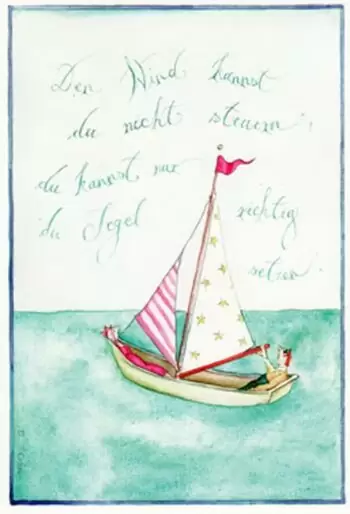 Den Wind kannst
du nicht steuern,
du kannst nur
du Segel richtig
setzen.